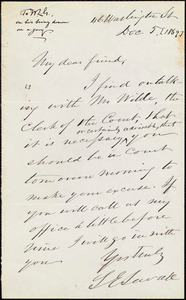 46 Washington St
Dec 5,
on his being drawn
on a jury
My dear friend,
I find on talk
ing with Mr Wilde, the
Clerk of the County, that
or certainly advisable, that
it is necessary you
should be in Court
tomorrow morning to
make your excuse. If
you will call at my
office a little before
nine I will go in with
you
Yrs truly
S E Sewall